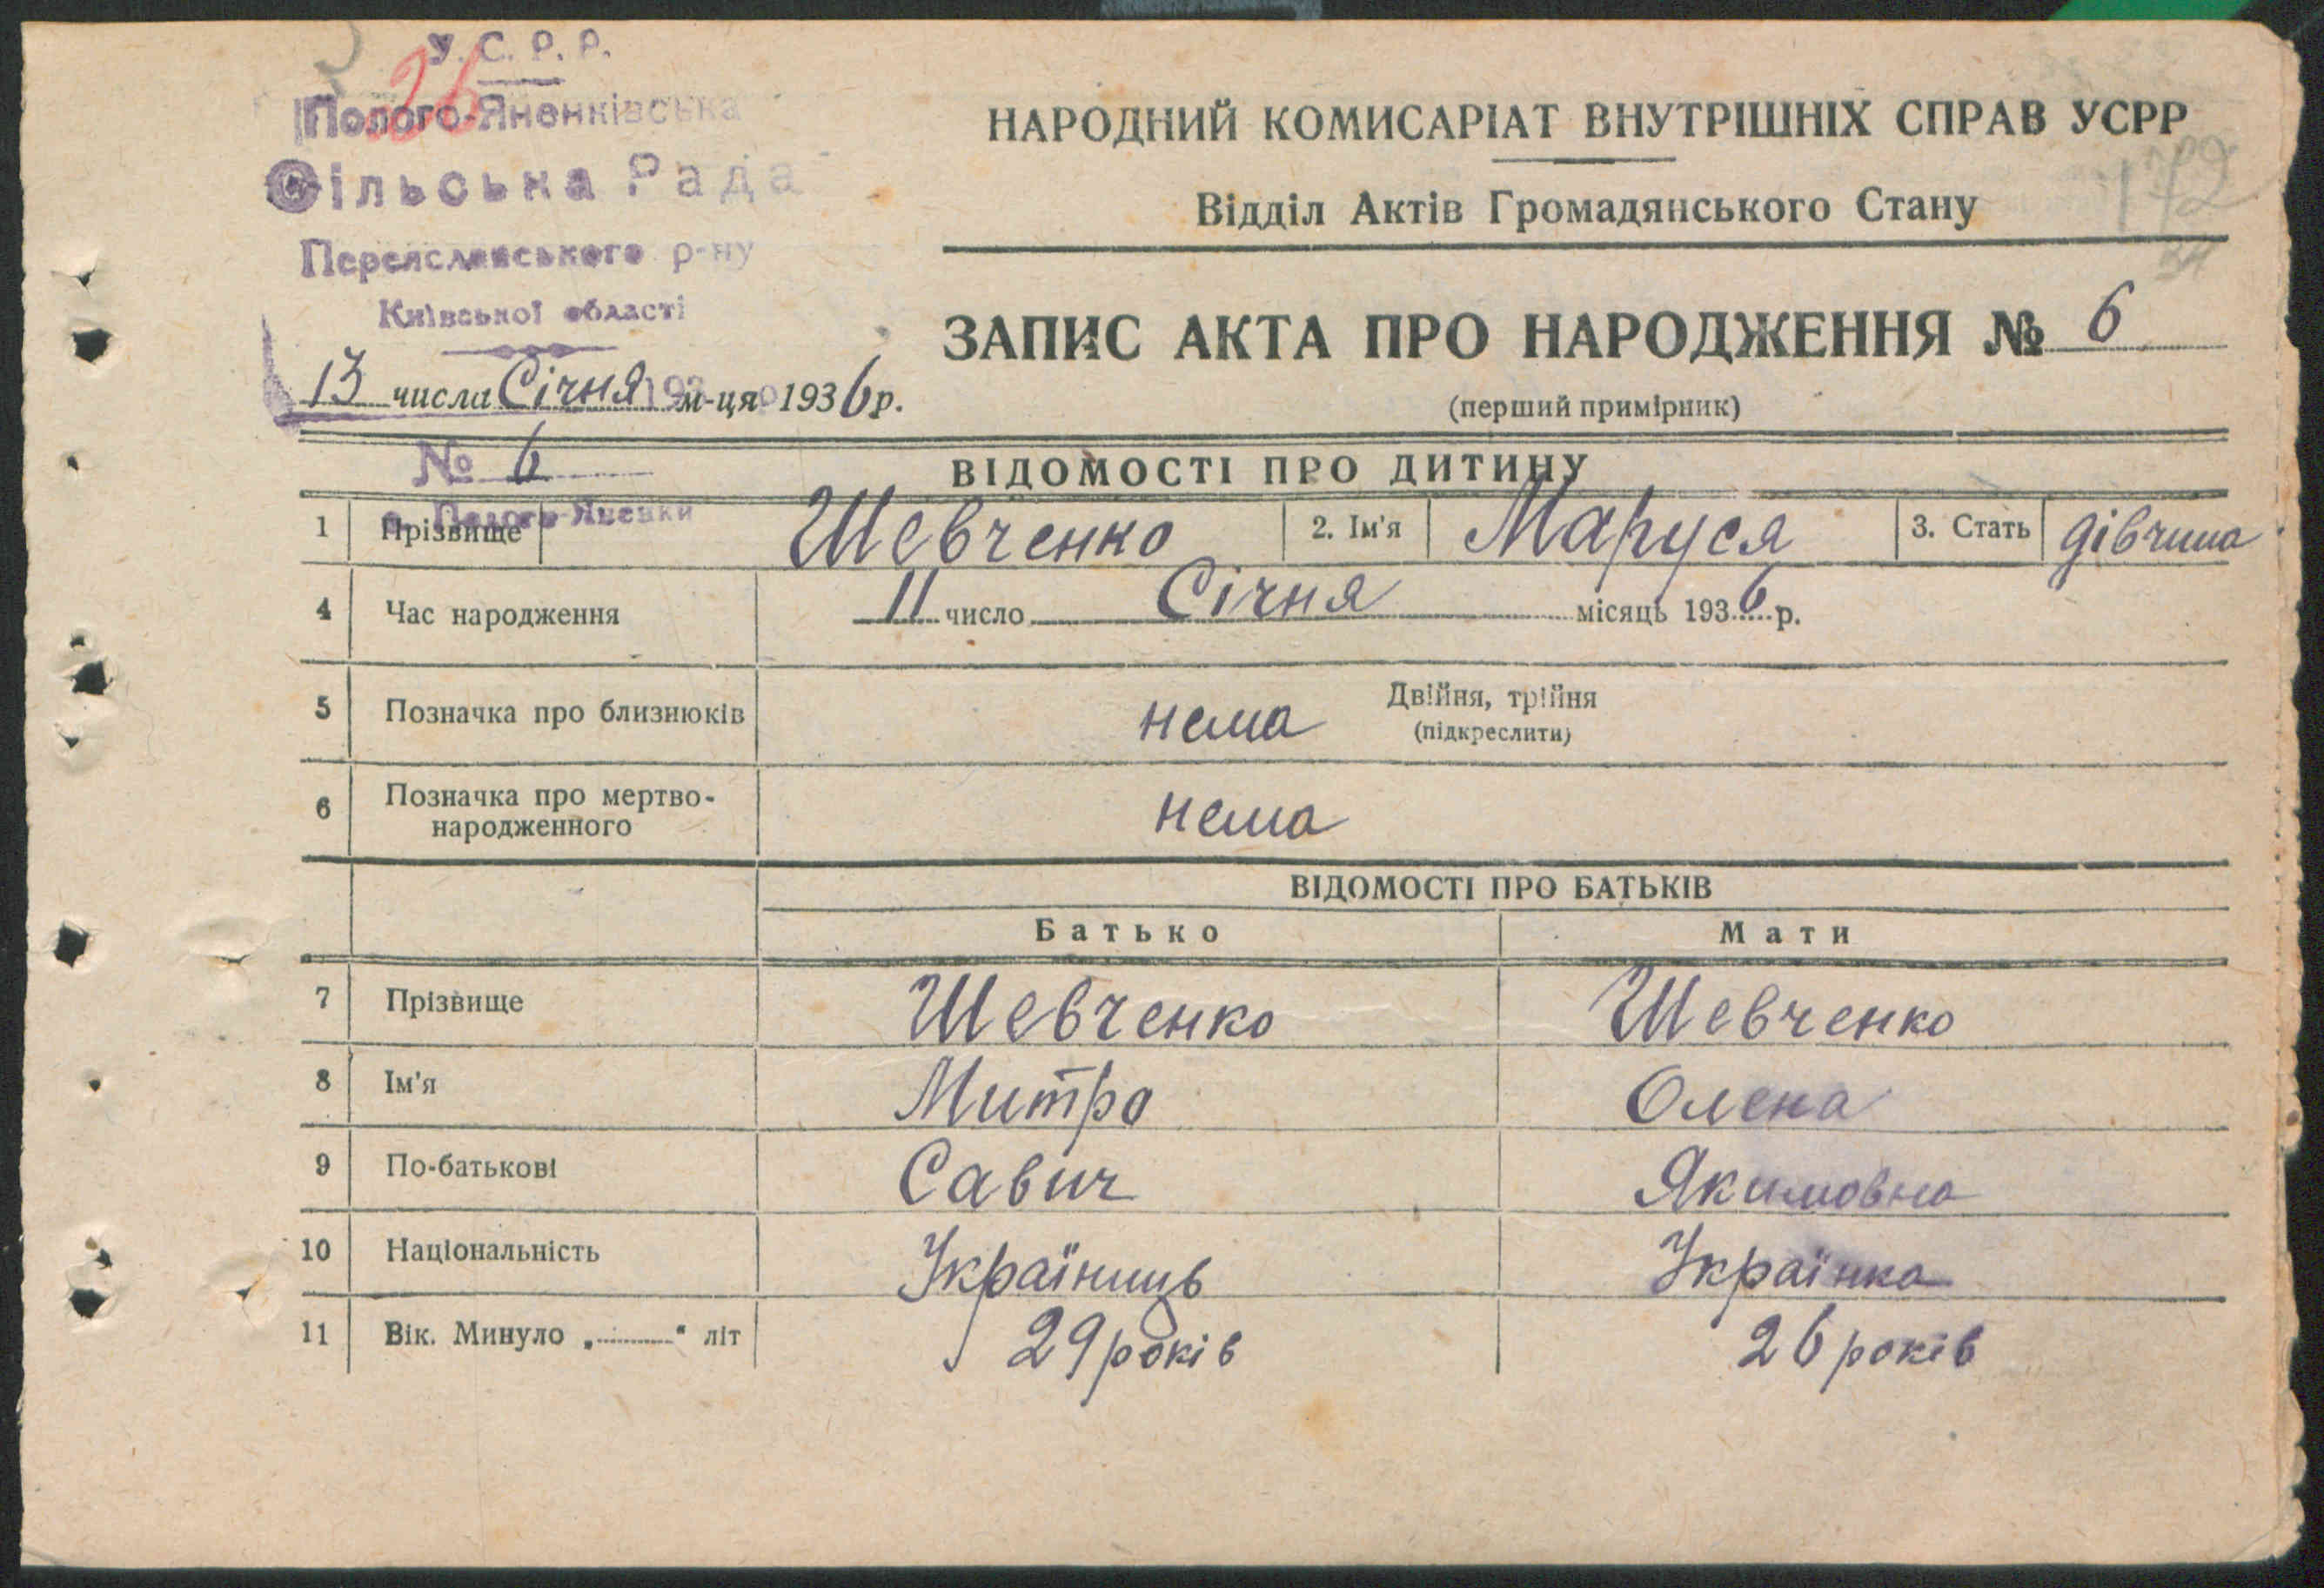 У.С.Р.Р.
26
Полого-Яненківська
Сільська Рада
Переяславського р-ну
Київської області
13 числа Січня м-ця 1936 р.
№ 6
с. Полого-Яненки
НАРОДНИЙ КОМИСАРІАТ ВНУТРІШНІХ СПРАВ УСРР
Відділ Актів Громадянського Стану
ЗАПИС АКТА ПРО НАРОДЖЕННЯ № 6
(перший примірник)
ВІДОМОСТІ ПРО ДИТИНУ
1 Прізвище Шевченко 2. Ім'я Маруся 3. Стать дівчина
4 Час народження 11 число Січня місяць 1936 р.
5 Позначка про близнюків нема Двійня, трійня
(підкреслити)
6 Позначка про мертво-
народженного нема
ВІДОМОСТІ ПРО БАТЬКІВ
Батько Мати
7 Прізвище Шевченко Шевченко
8 Ім'я Митро Олена
9 По-батькові Савич Якимовна
10 Національність Україниць Українка
11 Вік. Минуло „ “ літ 29 років 26 років